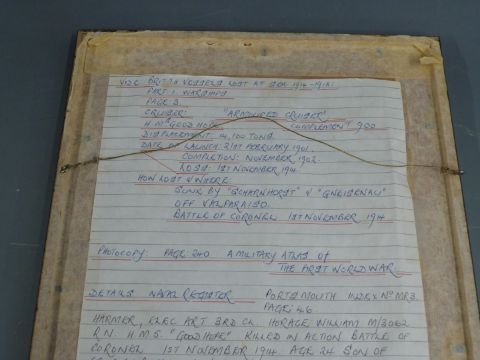 VIDE BRITISH VESSELS LOST AT SEA 1914-1918.
PART 1. WARSHIPS
PAGE 3.
CRUISER: "ARMOURED CRUISER"
H.M.S "GOOD HOPE" COMPLEMENT 900
DISPLACEMENT: 14,100 TONS
DATE OF LAUNCH: 21ST FEBRUARY 1901.
COMPLETION: NOVEMBER, 1902.
LOSS: 1ST NOVEMBER 1914
HOW LOST & WHERE
SUNK BY "SCHARNHORST" & "GNEISENAU"
OFF VALPARAISO.
BATTLE OF CORONEL 1ST NOVEMBER 1914
PHOTOCOPY: PAGE 240 A MILITARY ATLAS OF
THE FIRST WORLD WAR
DETAILS NAVAL REGISTER PORTSMOUTH INDEX NO MR 3.
PAGE 46
HARMER, ELEC ART 3RD CL. HORACE WILLIAM M/3062
R.N. H.M.S "GOOD HOPE" KILLED IN ACTION BATTLE OF
CORONEL 1ST NOVEMBER 1914 AGE 24 SON OF